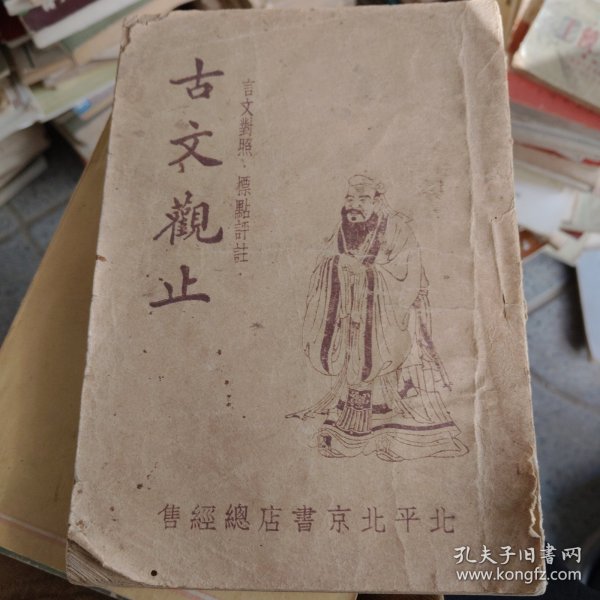 古文觀止
言文對照·標點評註·
北平北京書店總經售
孔夫子旧书网
www.kongfz.com